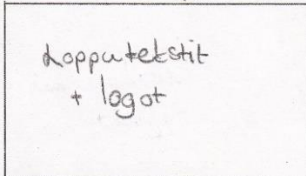 Lopputekstit
+ logot